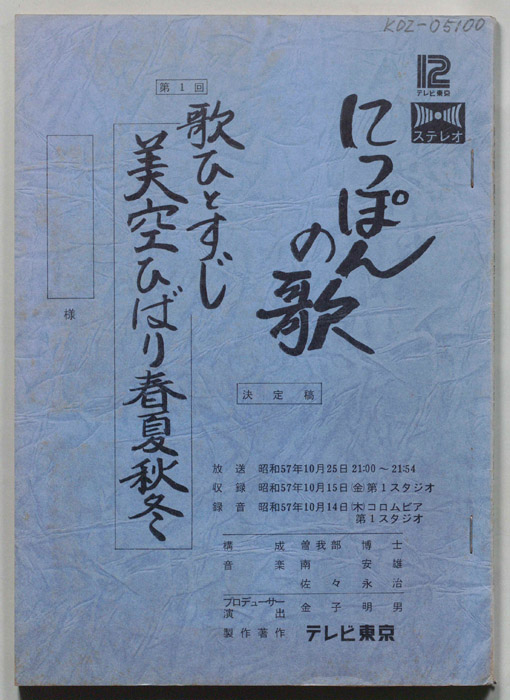 KDZ-05100
12
テレビ東京
ステレオ
にっぽん
の歌
第1回
歌ひとすじ
美空ひばり春夏秋冬
様
決定稿
放送 昭和57年10月25日 21:00〜21:54
収録 昭和57年10月15日㊎第1スタジオ
録音 昭和57年10月14日㊍コロムビア
第1スタジオ
構成 曽我部博士
音楽 南安雄
佐々永治
プロデューサー
演出 金子明男
製作著作 テレビ東京